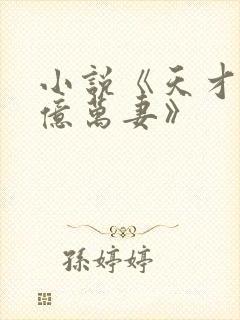 小說《天才
億萬妻》
孫婷婷